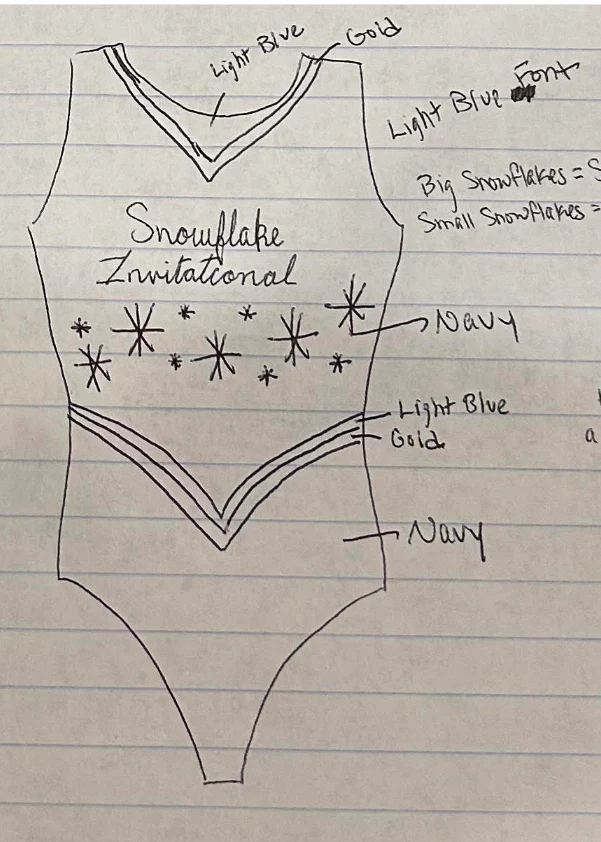 Light Blue
Gold
Light Blue Font
Big Snowflakes = S
Small Snowflakes =
Snowflake
Invitational
Navy
Light Blue
Gold
a
Navy